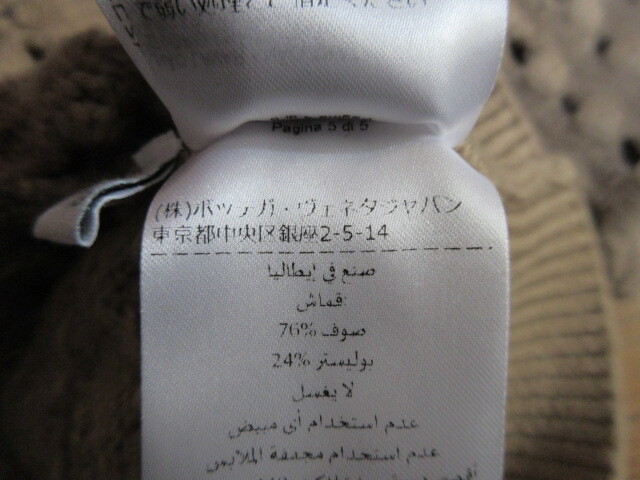 Pagina 5 di 5
(株)ボッテガ・ヴェネタジャパン
東京都中央区銀座2-5-14
صنع في إيطاليا
قماش:
صوف %76
بوليستر %24
لا يغسل
عدم استخدام أي مبيض
عدم استخدام مجففة الملابس